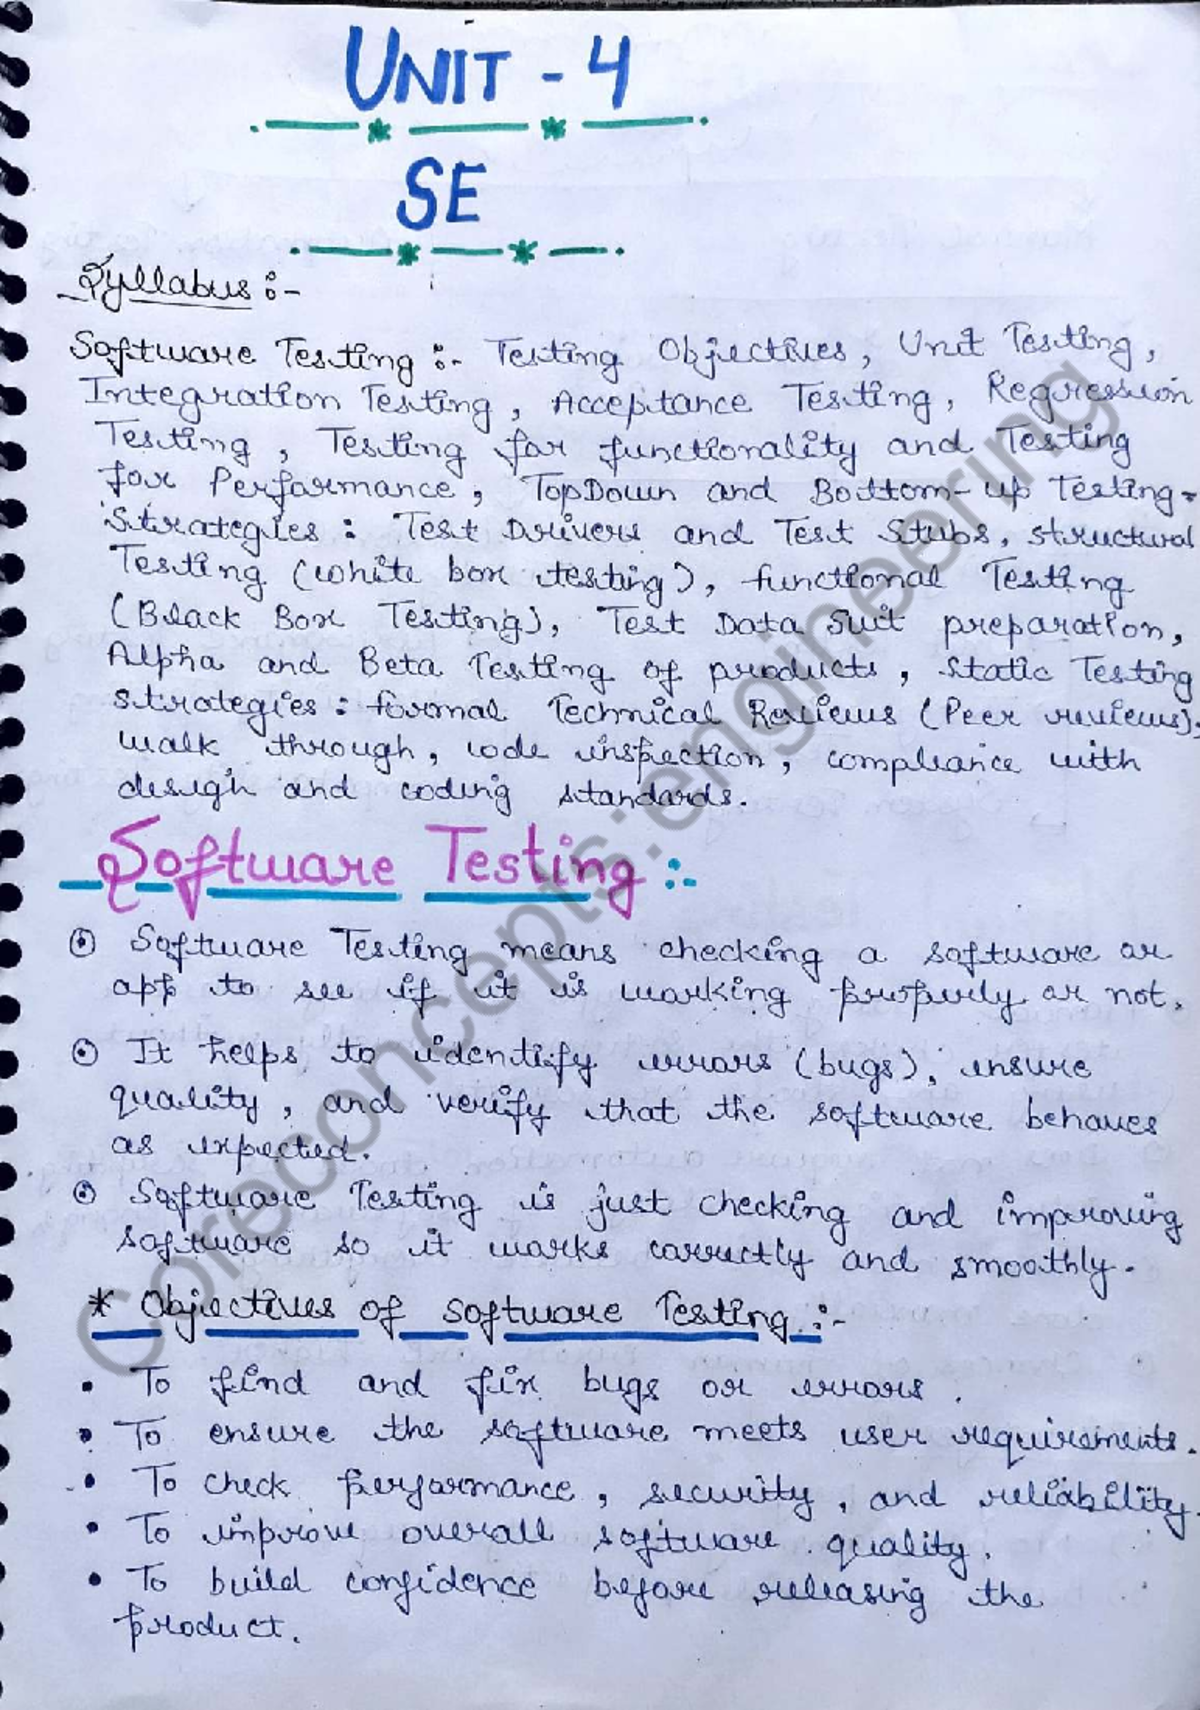 UNIT - 4
SE
Syllabus :-
Software Testing :- Testing Objectives, Unit Testing,
Integration Testing, Acceptance Testing, Regression
Testing, Testing for functionality and Testing
for Performance, TopDown and Bottom-up Testing-
Strategies : Test Drivers and Test Stubs, structural
Testing (white box testing), functional Testing
(Black Box Testing), Test Data Suit preparation,
Alpha and Beta Testing of products, Static Testing
strategies : formal Technical Reviews (Peer reviews),
walk through, code inspection, compliance with
design and coding standards.
Software Testing :-
Software Testing means checking a software or
app to see if it is working properly or not.
It helps to identify errors (bugs), ensure
quality, and verify that the software behaves
as expected.
Software Testing is just checking and improving
software so it works correctly and smoothly.
* Objectives of software Testing :-
• To find and fix bugs or errors.
• To ensure the software meets user requirements.
• To check performance, security, and reliability.
• To improve overall software quality.
• To build confidence before releasing the
product.
Coreconcepts:engineering